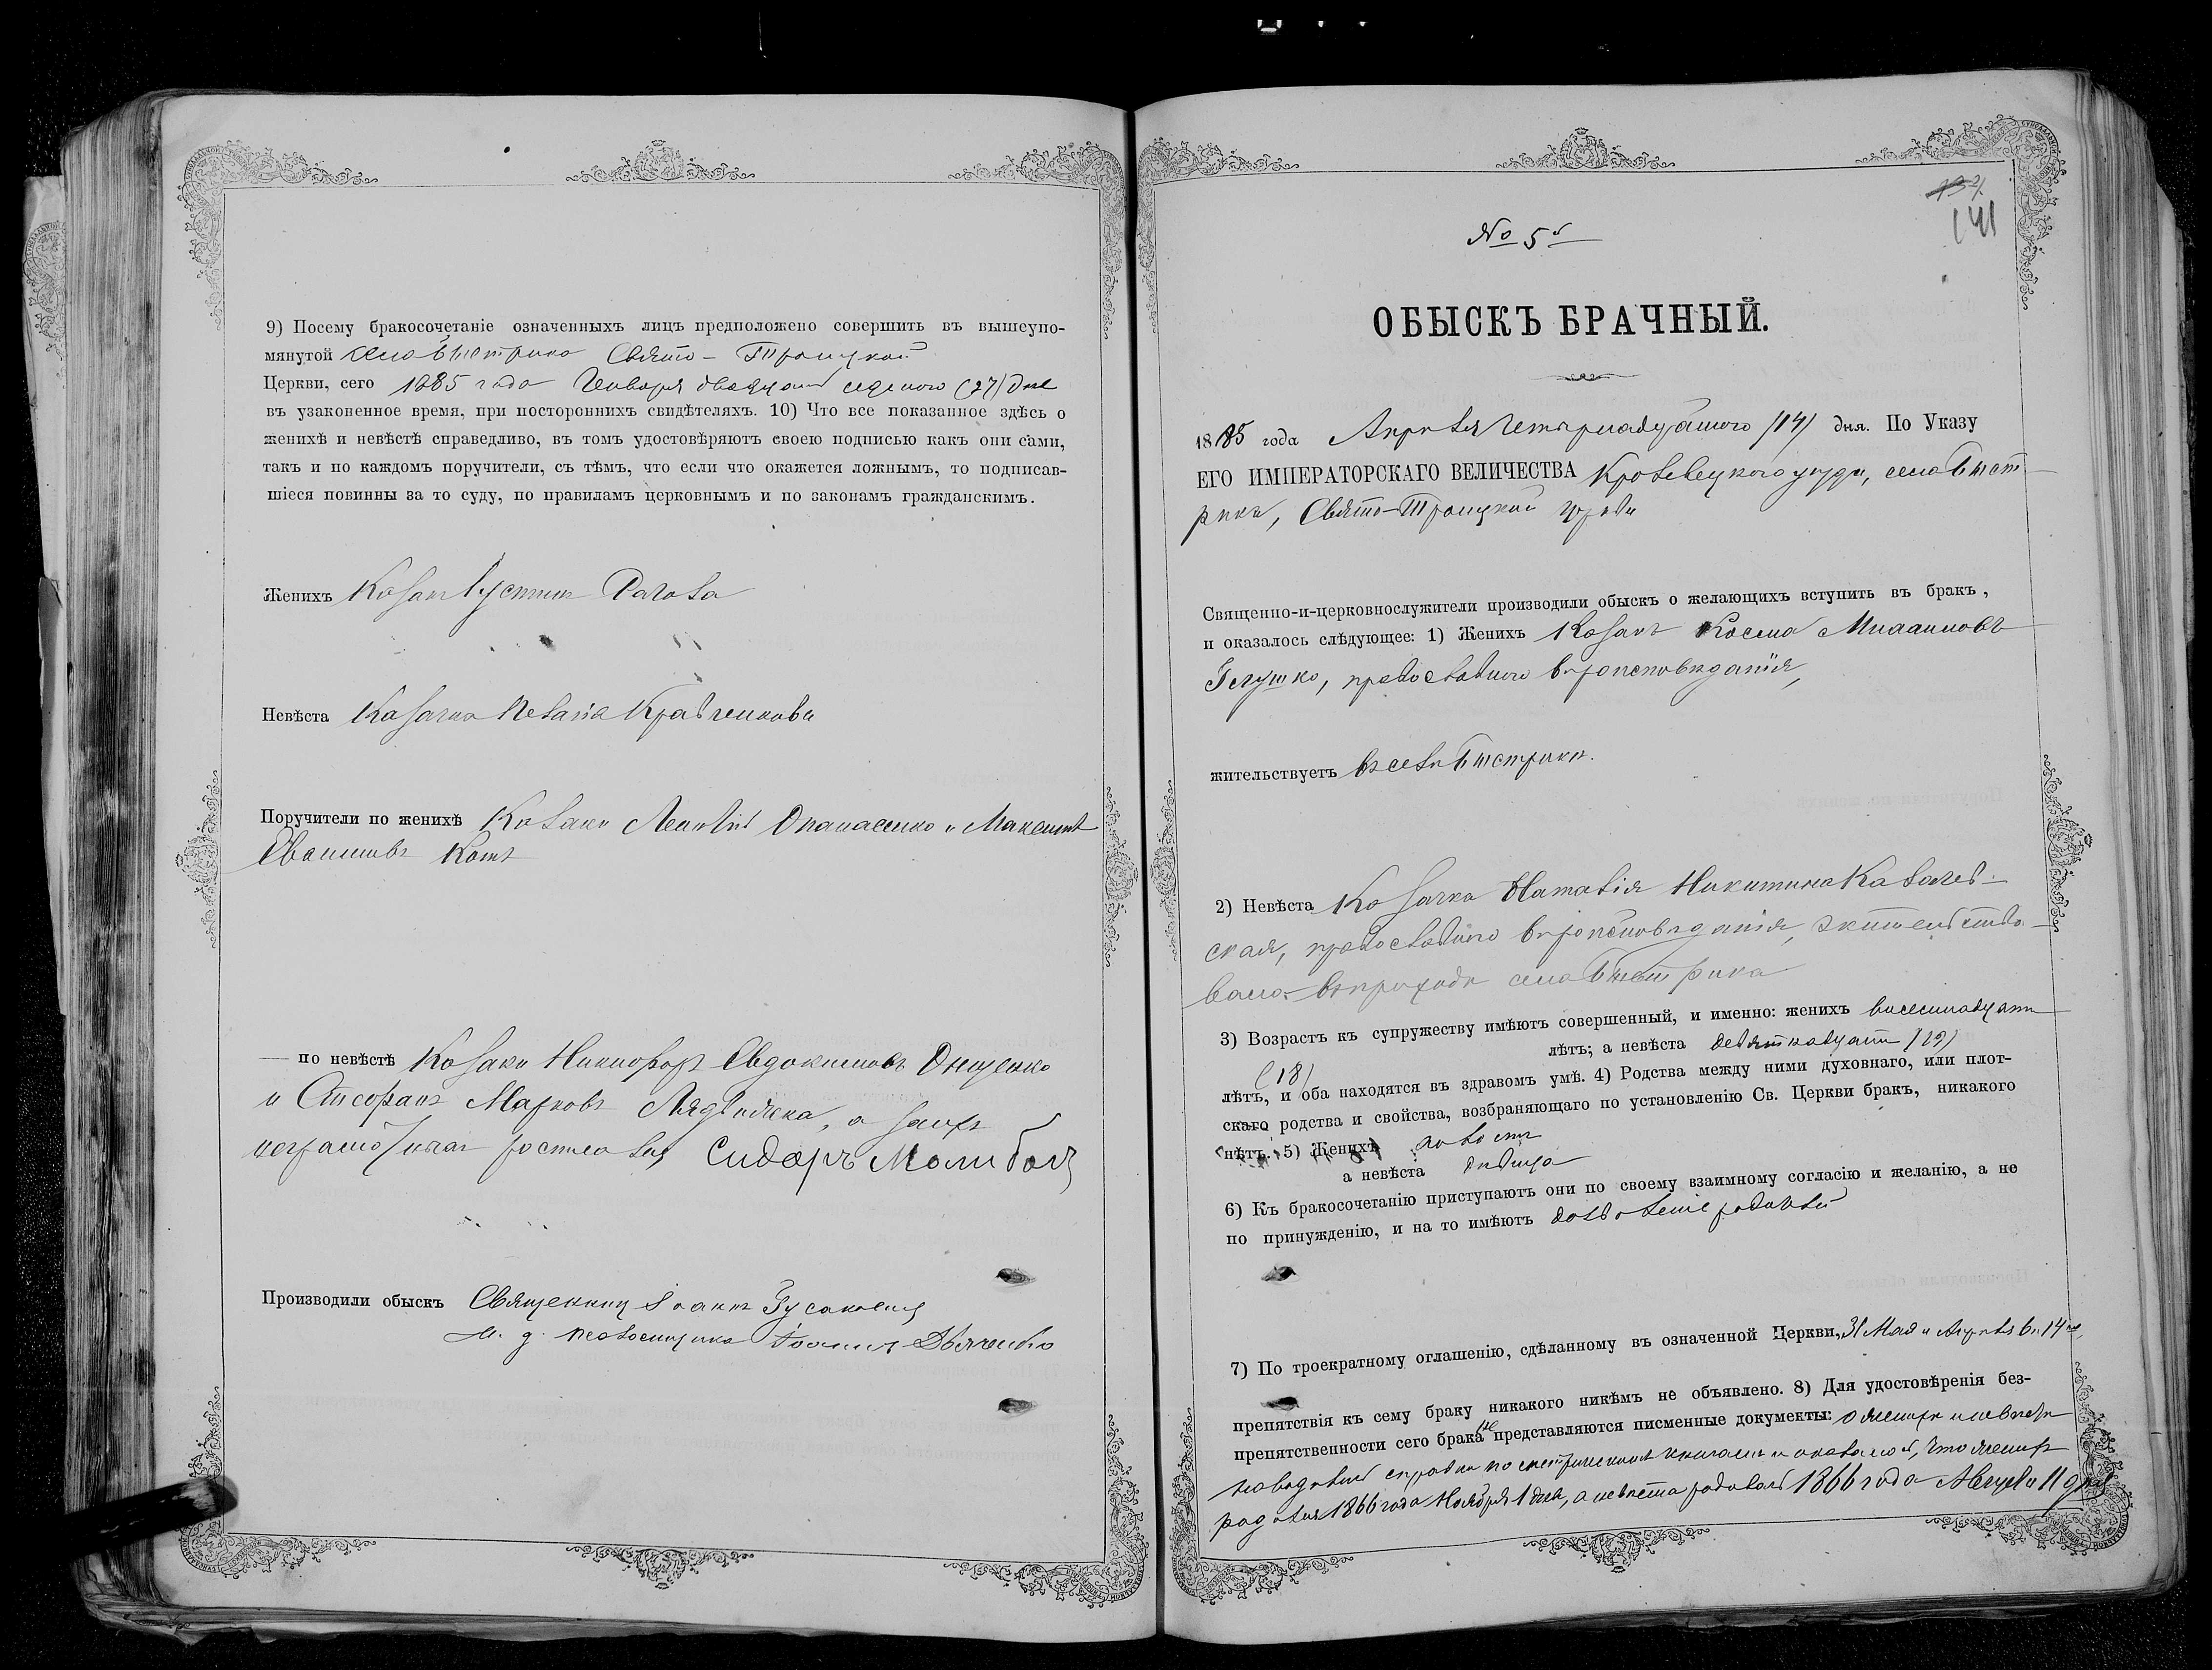 9) Посему бракосочетаніе означенныхъ лицъ предположено совершить въ вышеупо-
мянутой села Быстрика Свято-Троицкой
Церкви, сего 1885 года Генваря двадцать седьмого (27) дня
въ узаконенное время, при постороннихъ свидѣтеляхъ. 10) Что все показанное здѣсь о
женихѣ и невѣстѣ справедливо, въ томъ удостовѣряютъ своею подписью какъ они сами,
такъ и по каждомъ поручители, съ тѣмъ, что если что окажется ложнымъ, то подписав-
шіеся повинны за то суду, по правиламъ церковнымъ и по законамъ гражданскимъ.
Женихъ Козакъ Іустинъ
Невѣста Козачка Кравченкова
Поручители по женихѣ Козаки Леонтій Опанасенко и Максимъ
Котъ
— по невѣстѣ Козаки Никифоръ Евдокимовъ Онищенко
и Стефанъ Марковъ а за ихъ
Сидоръ
Производили обыскъ Священникъ Іоаннъ
и. д. псаломщика
132
141
№ 5й
ОБЫСКЪ БРАЧНЫЙ.
1885 года Апрѣля Четырнадцатого /14/ дня. По Указу
ЕГО ИМПЕРАТОРСКАГО ВЕЛИЧЕСТВА Кролевецкого уезда, села Быст-
рика, Свято-Троицкой церкви
Священно-и-церковнослужители производили обыскъ о желающихъ вступить въ бракъ,
и оказалось слѣдующее: 1) Женихъ Козакъ Косма
Глушко, православного вѣроисповѣданія,
жительствуетъ въ селѣ Быстрикѣ.
2) Невѣста Козачка Наталія Никитина Кавалев-
ская, православного вѣроисповѣданія, жительство-
вала въ приходѣ села Быстрика
3) Возрастъ къ супружеству имѣютъ совершенный, и именно: женихъ восемнадцать
(18)
лѣтъ; а невѣста девятнадцать /19/
лѣтъ, и оба находятся въ здравомъ умѣ. 4) Родства между ними духовнаго, или плот-
скаго родства и свойства, возбраняющаго по установленію Св. Церкви бракъ, никакого
нѣтъ. 5) Женихъ холостъ
а невѣста дѣвица
6) Къ бракосочетанію приступаютъ они по своему взаимному согласію и желанію, а не
по принужденію, и на то имѣютъ дозволеніе родителей
7) По троекратному оглашенію, сдѣланному въ означенной Церкви, 31 Мая и Апрѣля 6 и 14го
препятствія къ сему браку никакого никѣмъ не объявлено. 8) Для удостовѣренія без-
препятственности сего брака не представляются писменные документы: о женихѣ и невѣстѣ
справки по метрическимъ книгамъ и оказалось, что женихъ
родился 1866 года Ноября 1 дня, а невѣста родилась 1866 года 11 дня